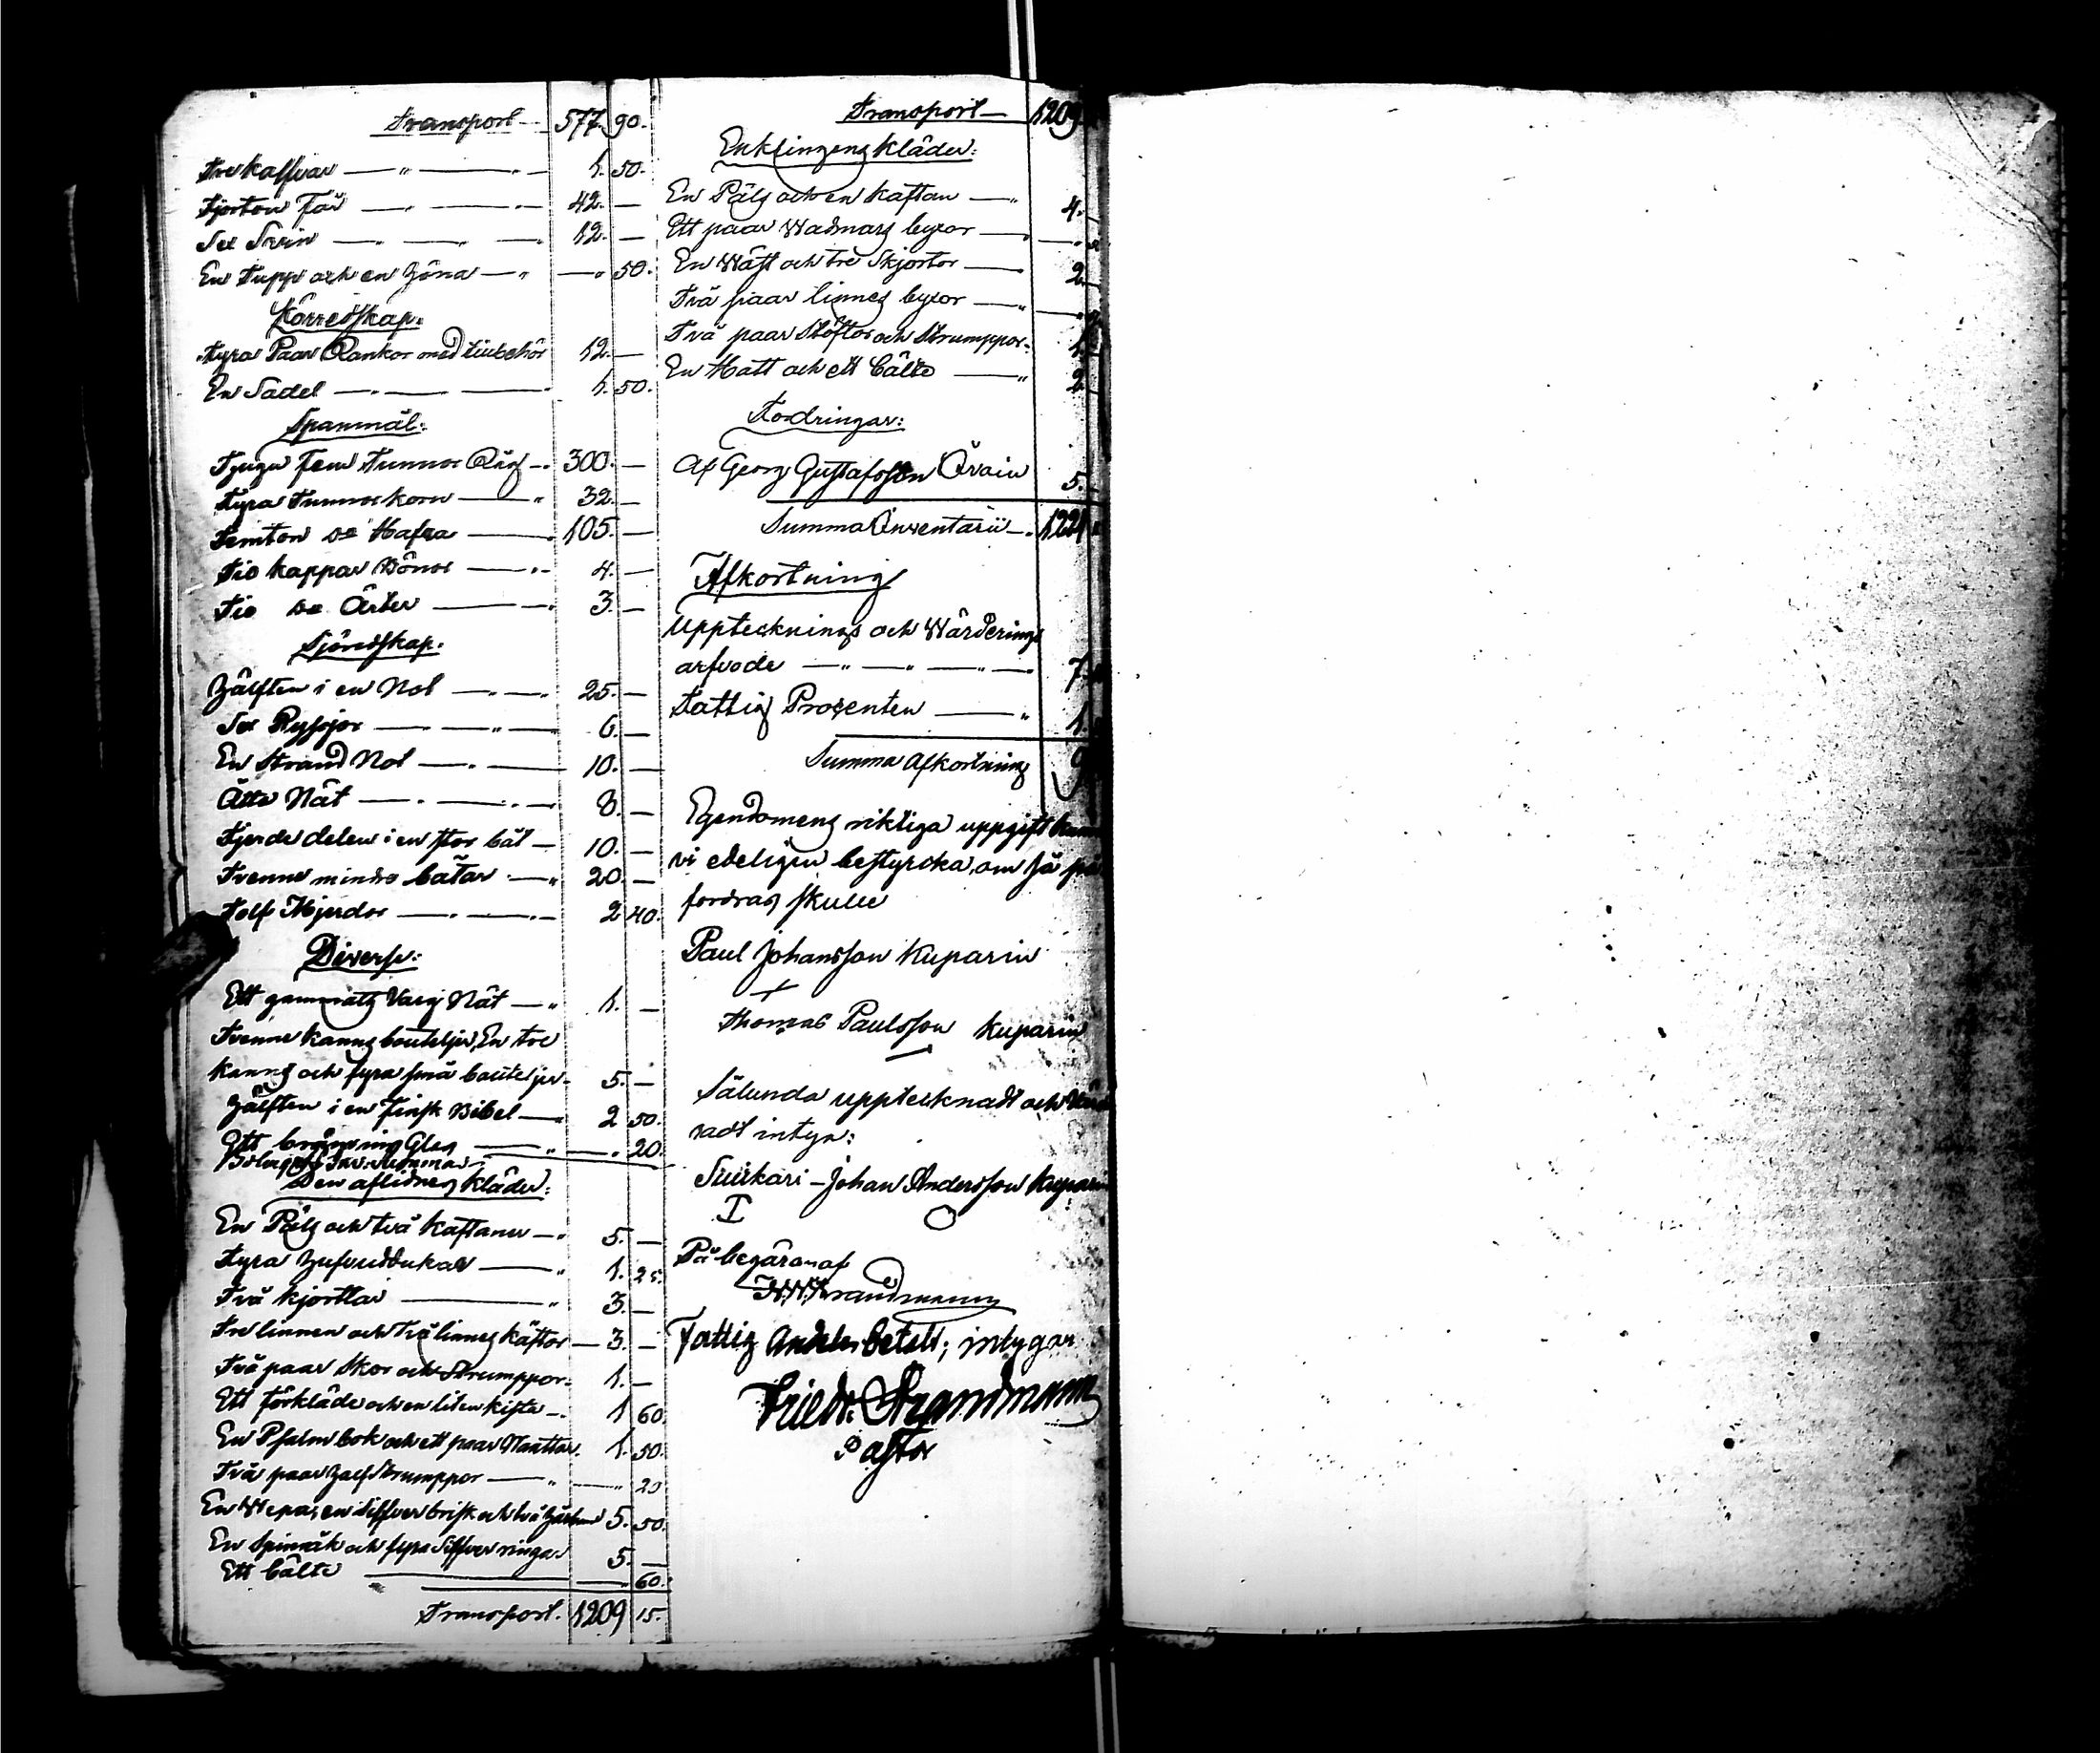 Transport — 577. 90.
Tre kalfvar — " — 1. 50.
Fjorton Får — 42. —
Sex Svin — 12. —
En Tupp och en Höna — " — 50.
Körredskap:
Fyra Paar Rankor med tillbehör 12. —
En Sadel — 1. 50.
Spanmål:
Tjugu fem Tunnor Råg — 300. —
Fyra Tunnor korn — " 32. —
Femton do Hafra — 105. —
Tio kappar Bönor — 4. —
Tio do Ärter — 3. —
Sjöredskap:
Hälften i en Not — 25. —
Sex Ryssjor — " — 6. —
En Strand Not — 10. —
Åtta Nät — 8. —
Fjerde delen i en stor båt — 10. —
Tvenne mindre båtar — " 20. —
Tolf Mjerdor — 2 40.
Diverse:
Ett gammalt Varg Nät — " 1. —
Tvenne kanns bouteljer, En tre
kanns och fyra små bouteljer. 5. —
Hälften i en finsk Bibel — 2 50.
Ett bränvins Glas — " — 20.
Den aflidnes kläder:
En Päls och två kaftaner — " 5. —
Fyra Hufvuddukar — " 1. 25.
Två kjortlar — " 3. —
Tre linnen och två linnes käftor — 3. —
Två paar Skor och Strumppor. 1. —
Ett förkläde och en liten kista — 1 60.
En Psalmbok och ett paar Vanttar. 1. 50.
Två paar Half Strumppor — " — 20
En Wepa, en Silfver brisk och två 5. 50.
En Spinnråk och fyra Silfver ringar 5. —
Ett bälte — 60.
Transport. 1209 15.
Transport — 1209
Enklingens kläder:
En Päls och en kaftan — " 4.
Ett paar Wadmars byxor —
En Wäst och tre Skjortor — 2.
Två paar linnes byxor — "
Två paar Stöflor och Strumppor. 1.
En Hatt och ett bälte — " 2
Fodringar:
Af Georg Gustafsson Orain 5.
Summa Inventarii — 1221
Afkortning
Upptecknings och Wärderings
arfvode — " — " — " — 7.
Fattig Procenten — " 1.
Summa Afkortning 9
Egendomens riktiga uppgift kunna
vi edeligen bestyrcka, om så på
fordras skulle
Paul Johansson Kuparin
Thomas Paulsson Kuparin
Sålunda upptecknadt och Värde
radt intyga:
Suikari — Johan Andersson Kuparin
På begäran af
Strandmann
Fattig Andelen betalt; intygar
Friedr. Strandmann
Pastor